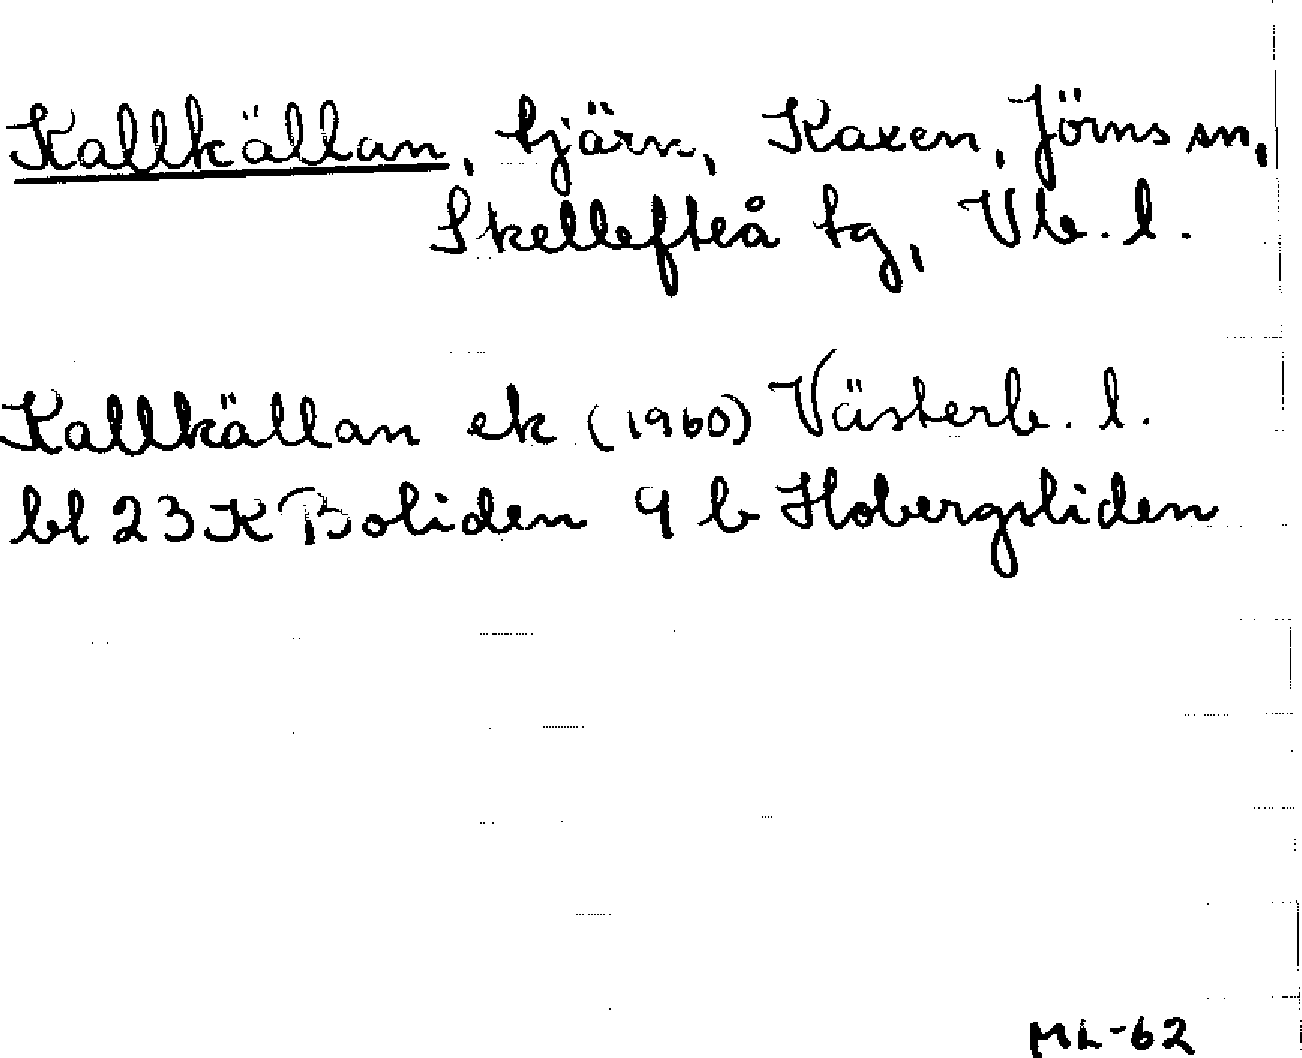 Kallkällan, tjärn, Kaxen, Jörns sn,
Skellefteå tg, Vb. l.
Kallkällan ek (1960) Västerb. l.
bl 23 K Boliden 9 b Hobergsliden
ML-62